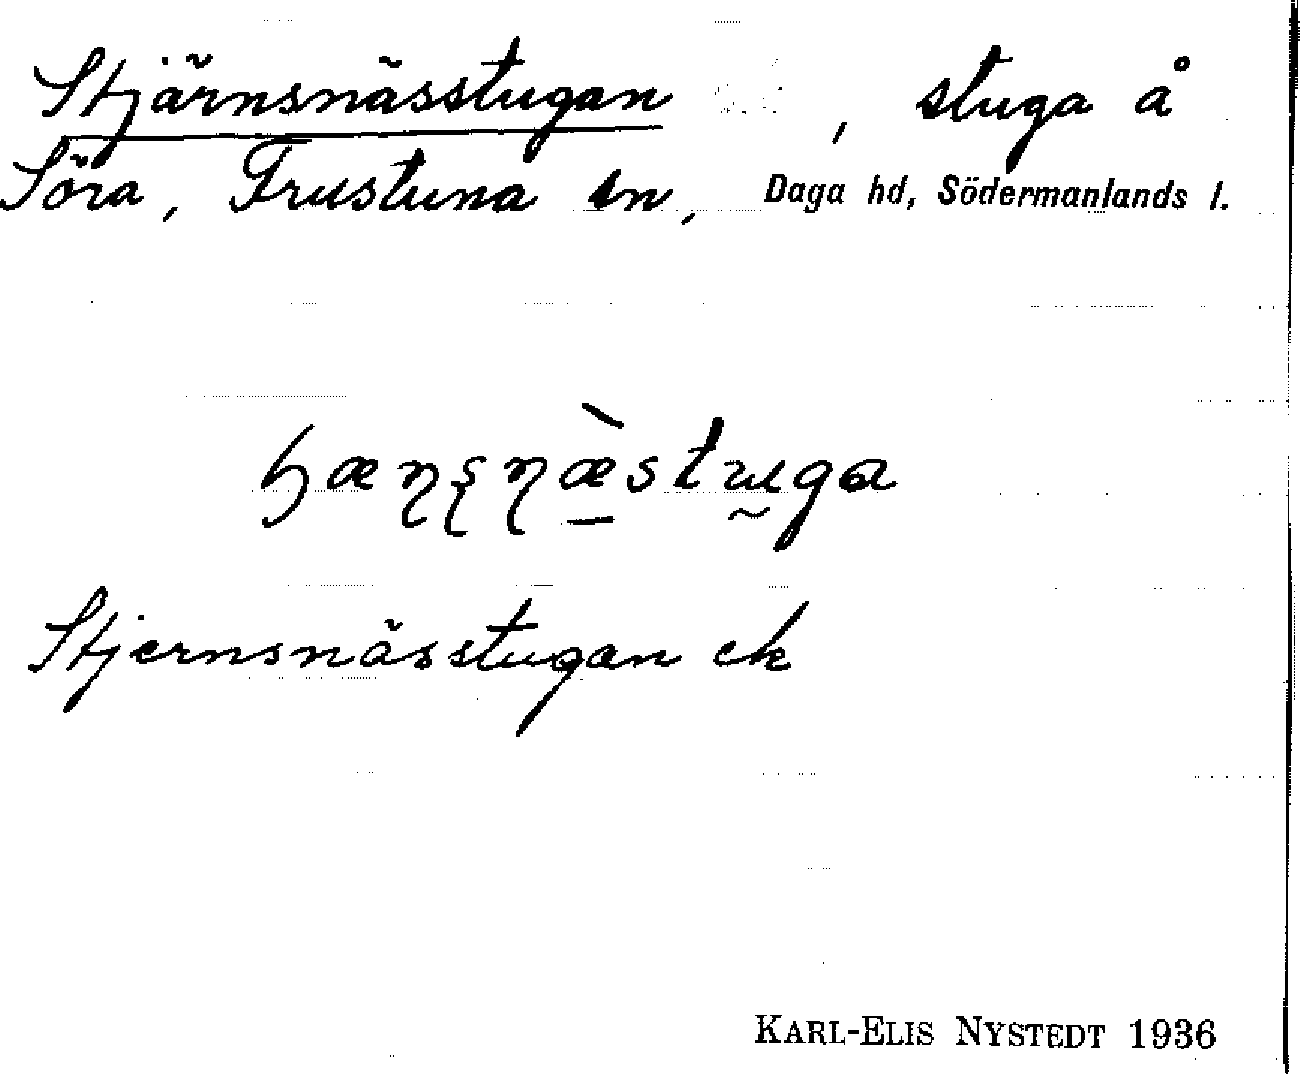 Stjärnsnässtugan, stuga å
Söra, Frustuna sn, Daga hd, Södermanlands l.
ɧæɳʂɳæ̀stuga
Stjernsnässtugan ek
KARL-ELIS NYSTEDT 1936